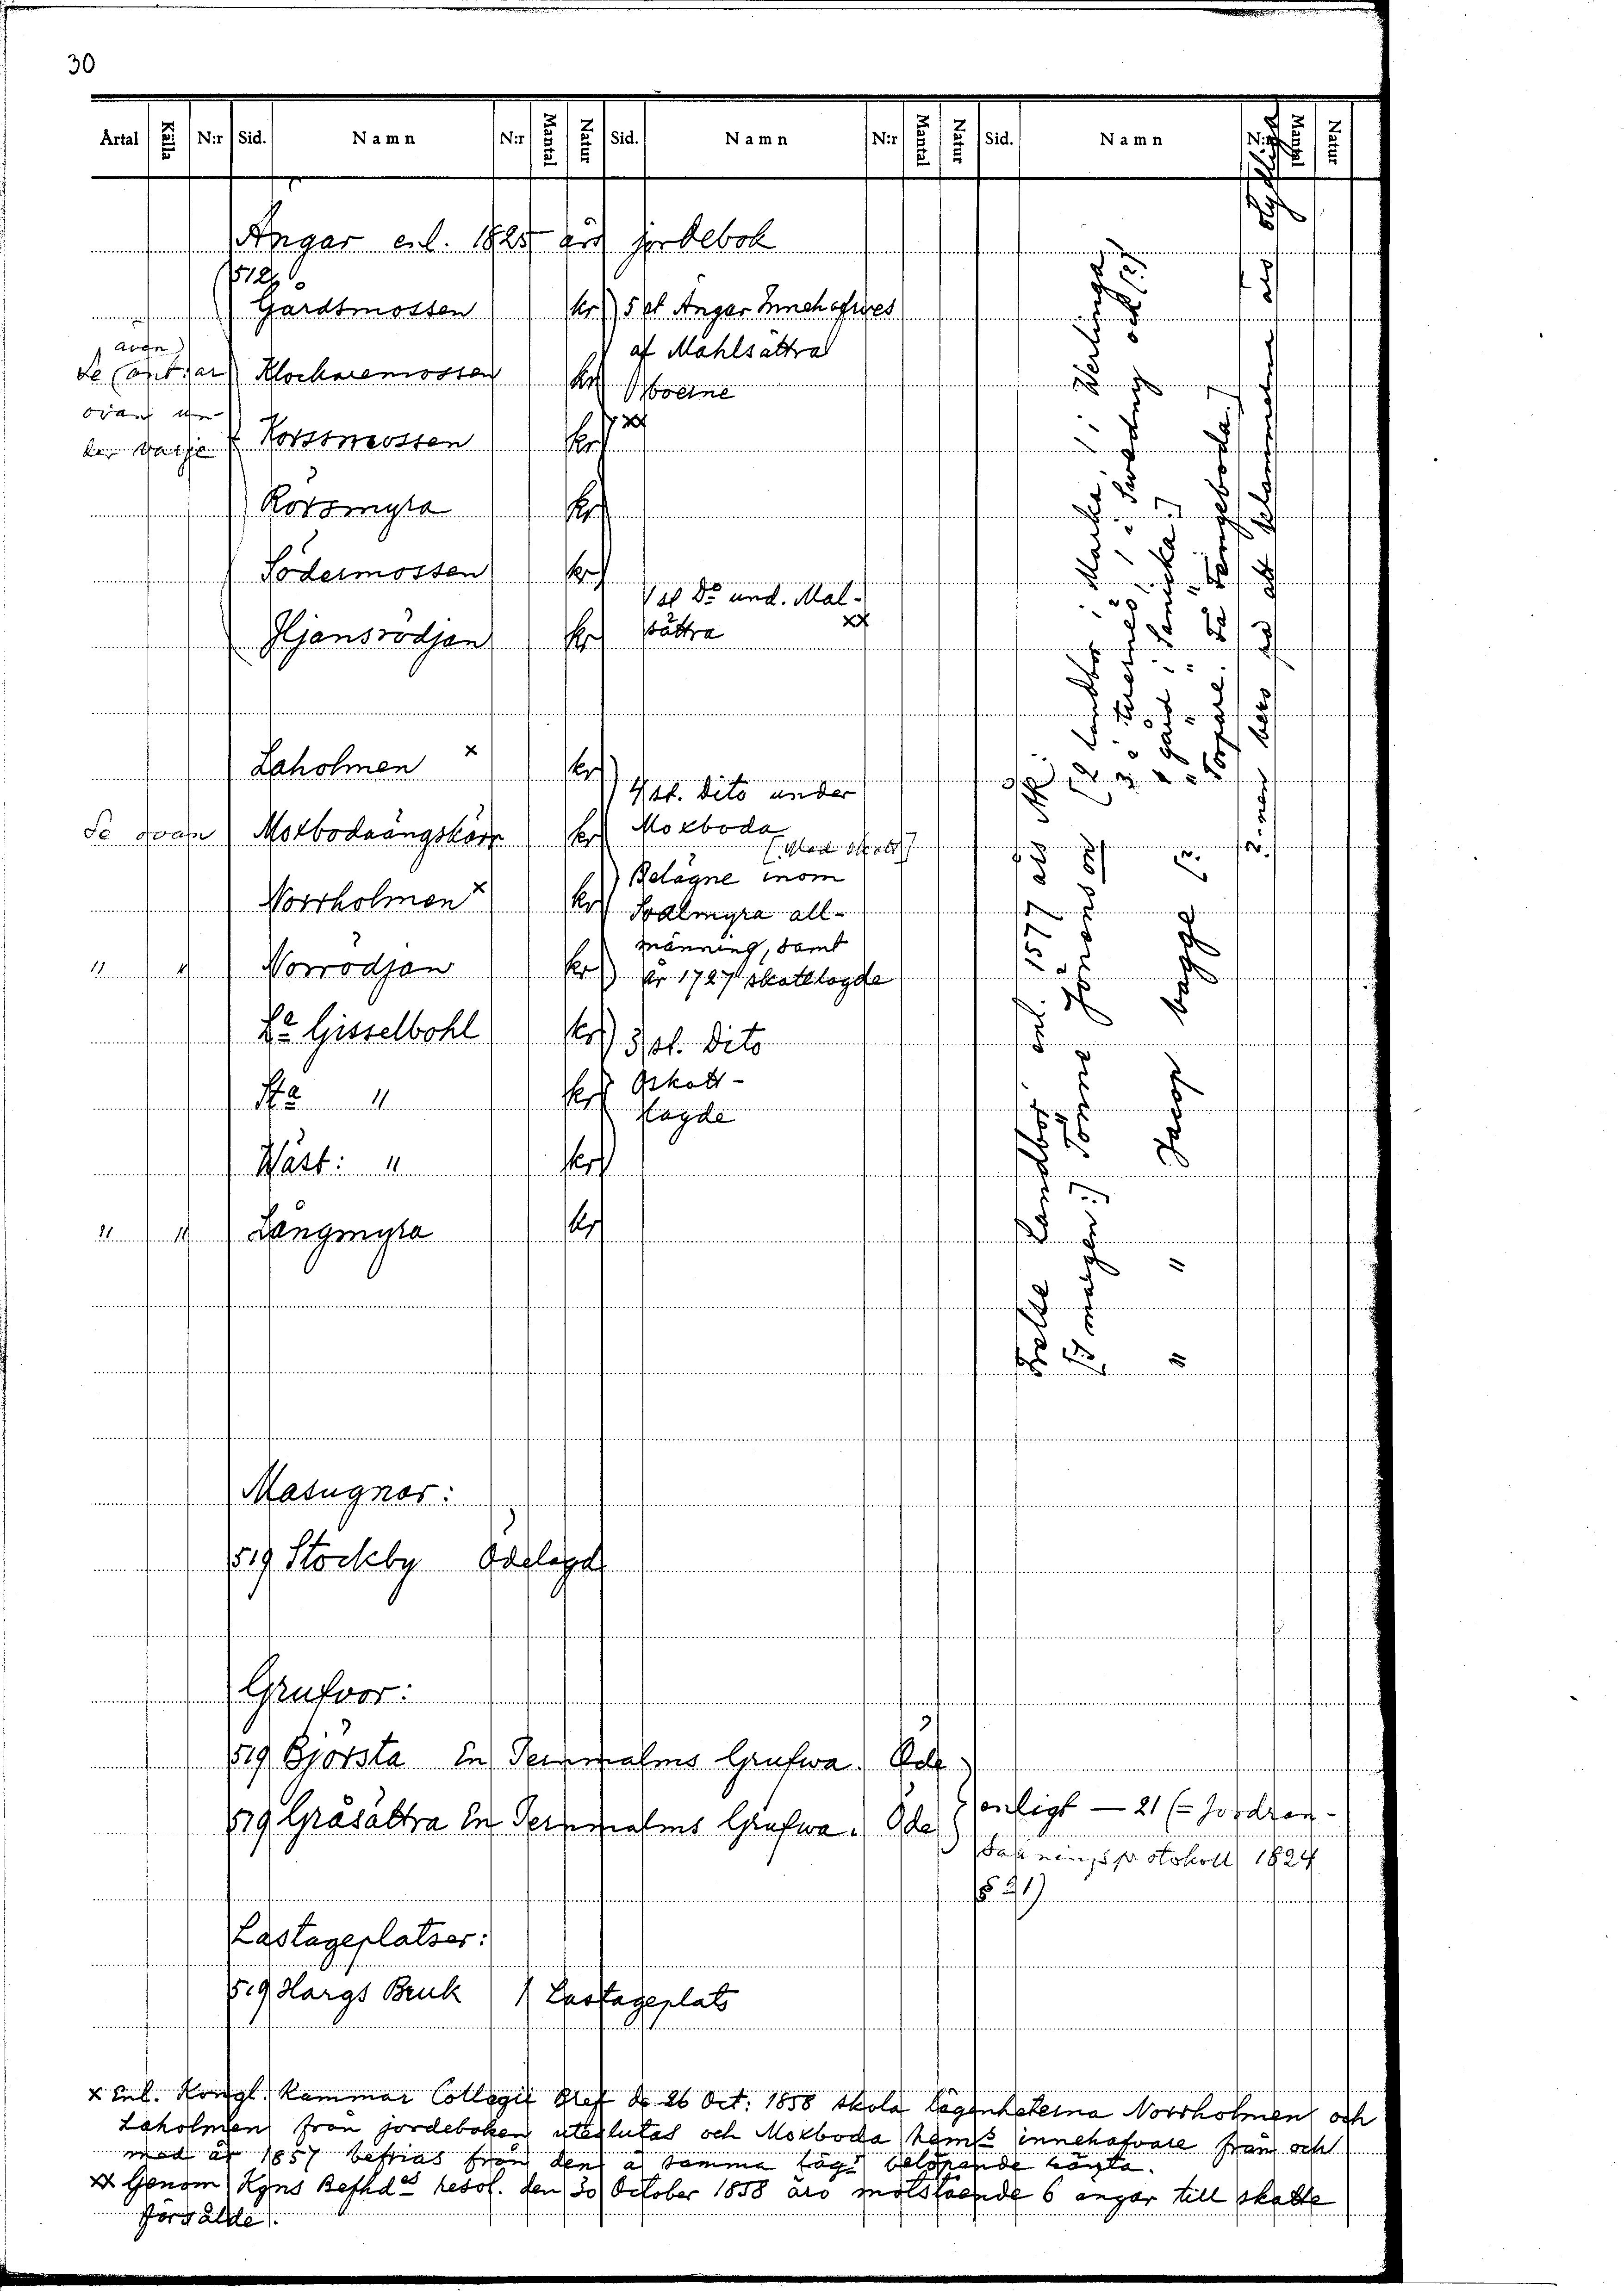 30
Årtal Källa N:r Sid. Namn N:r Mantal Natur Sid. Namn N:r Mantal Natur Sid. Namn N:r Mantal Natur
Ängar enl. 1825 års jordebok
512
Gårdsmossen kr 5 st Ängar Innehafves
af Mahlsättra
Åboerne
xx
även
Se (ant:ar
ovan un-
der Watje
Klockaremossen kr
Korssmossen kr
Rörsmyra kr
Södermossen kr
Hjansrödjan kr 1 st Do und. Mal-
sättra xx
Laholmen x kr 4 st. dito under
Se ovan Moxbodaängskärr kr Moxboda
[Med skatt]
Norrholmen x kr Belägne inom
Soalmyra all-
männing, samt
" " Norrödjan kr år 1727 skattlagde
La Gisselbohl kr 3 st. Dito
Sta " kr Oskatt-
lagde
Wäst: " kr
" " Långmyra kr
Masugnar:
519 Stockby Ödelagd
Grufvor:
519 Björsta En Jernmalms Grufwa. Öde
519 Gråsättra En Jernmalms Grufwa. Öde
enligt — 21 (= Jordran-
sakningsprotokoll 1824
§ 21)
Lastageplatser:
519 Hargs Bruk 1 Lastageplats
x Enl. Kongl. Kammar Collegii Bref de 26 Oct: 1858 skola lägenheterna Norrholmen och
Laholmen från jordeboken uteslutas och Moxboda hems innehafvare från och
med år 1857 befrias från den å samma läg: belöpande ränta.
xx Genom Kgns Befhdes resol. den 30 October 1858 äro motstående 6 ängar till skatte
försålde.
Frälse Landbor enl. 1577 års
[I margen:] Tönne Jönsson
" " Jacop bagge
[2 landbor i Marka, 1 i Werlinga
gård i Sanicka]
Torpare.